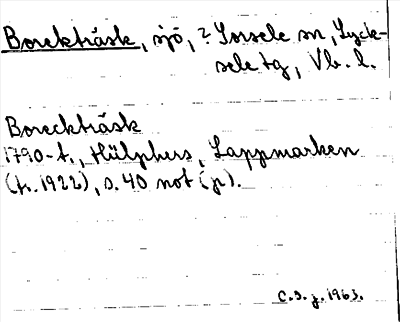 Borekträsk, sjö, ? Sorsele sn, Lyck-
sele tg, Vb. l.
Boreckträsk
1790-t., Hülphers, Lappmarken
(tr. 1922), s. 40 not (p).
C.S. j. 1963.